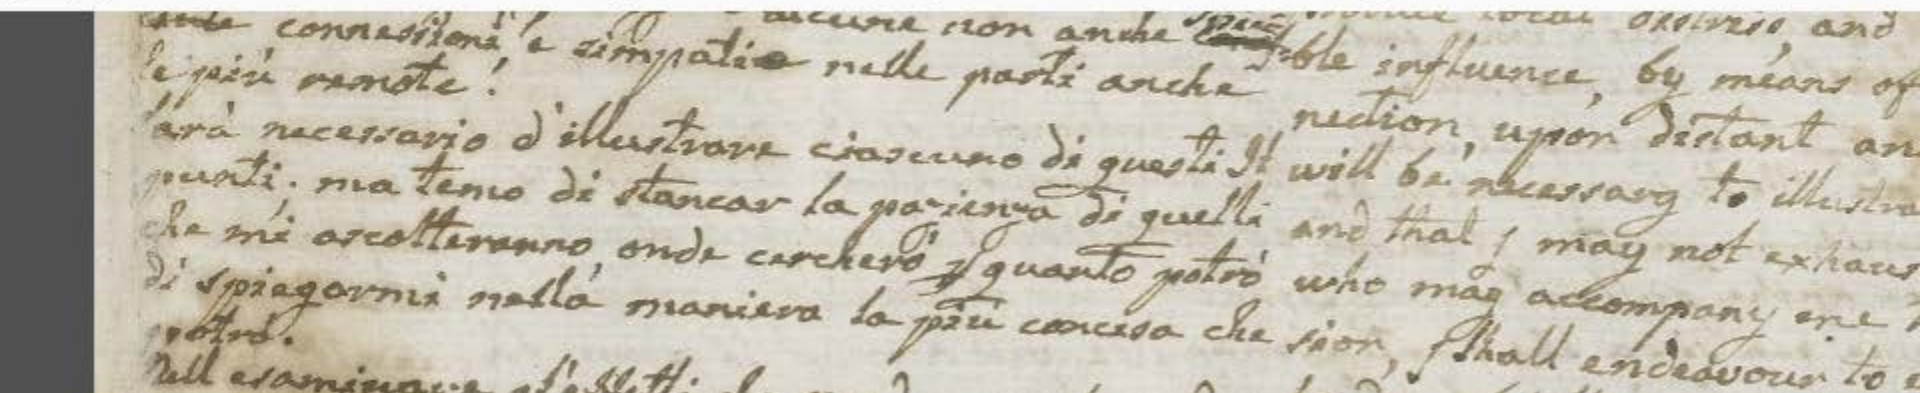 connessioni, e simpatie nelle parti anche
le più remote!
sarà necessario d'illustrare ciascuno di questi
punti; ma temo di stancar la pazienza di quelli
che mi ascolteranno, onde cercherò quanto potrò
di spiegarmi nella maniera la più concisa che
potrò.
Nell esaminare
local distress, and
ble influence, by means of
nection, upon distant an
It will be necessary to illustra
and that I may not exhaus
who may accompany me
sion, I shall endeavour to e